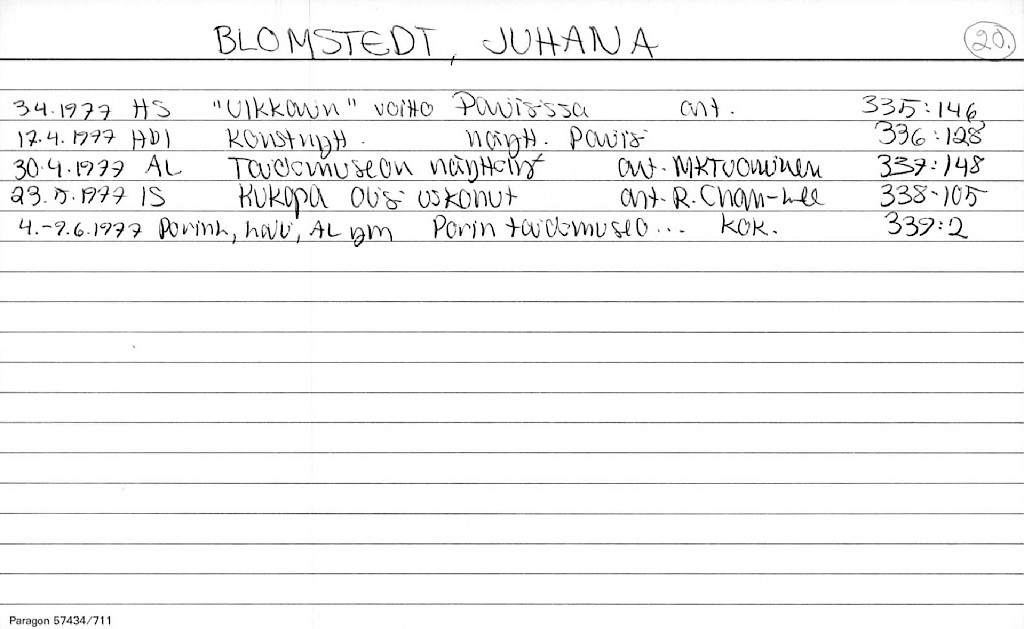 BLOMSTEDT, JUHANA 20.
3.4.1977 HS "Ulkkavin" voitto Pariisissa ant. 335:146
17.4.1977 HBl Konstnytt. näytt. Pariis 336:128
30.4.1977 AL Taidemuseon näyttelyt ant. MKTuominen 337:148
23.5.1977 IS Kukapa olisi uskonut ant. R. Cham-Lee 338-105
4.-9.6.1977 Porink, AL ym Porin taidemuseo... kok. 339:2
Paragon 57434/711